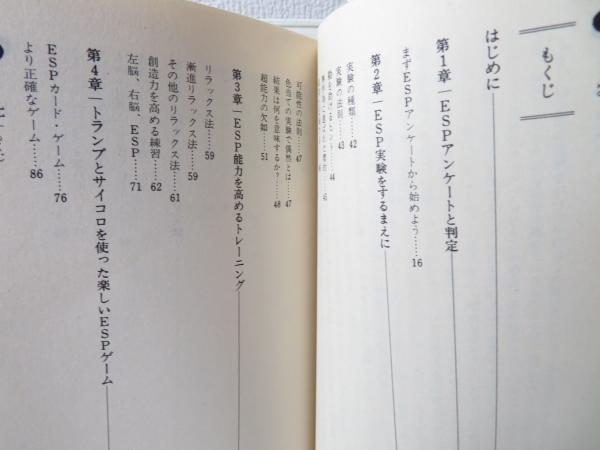 もくじ
はじめに
第1章―ESPアンケートと判定
まずESPアンケートから始めよう……16
第2章―ESP実験をするまえに
実験の種類……42
実験の法則……43
可能性の法則……47
色当ての実験で偶然とは……47
結果は何を意味するか?……48
超能力の欠如……51
第3章―ESP能力を高めるトレーニング
リラックス法……59
漸進リラックス法……59
その他のリラックス法……61
創造力を高める練習……62
左脳、右脳、ESP……71
第4章―トランプとサイコロを使った楽しいESPゲーム
ESPカード・ゲーム……76
より正確なゲーム……86